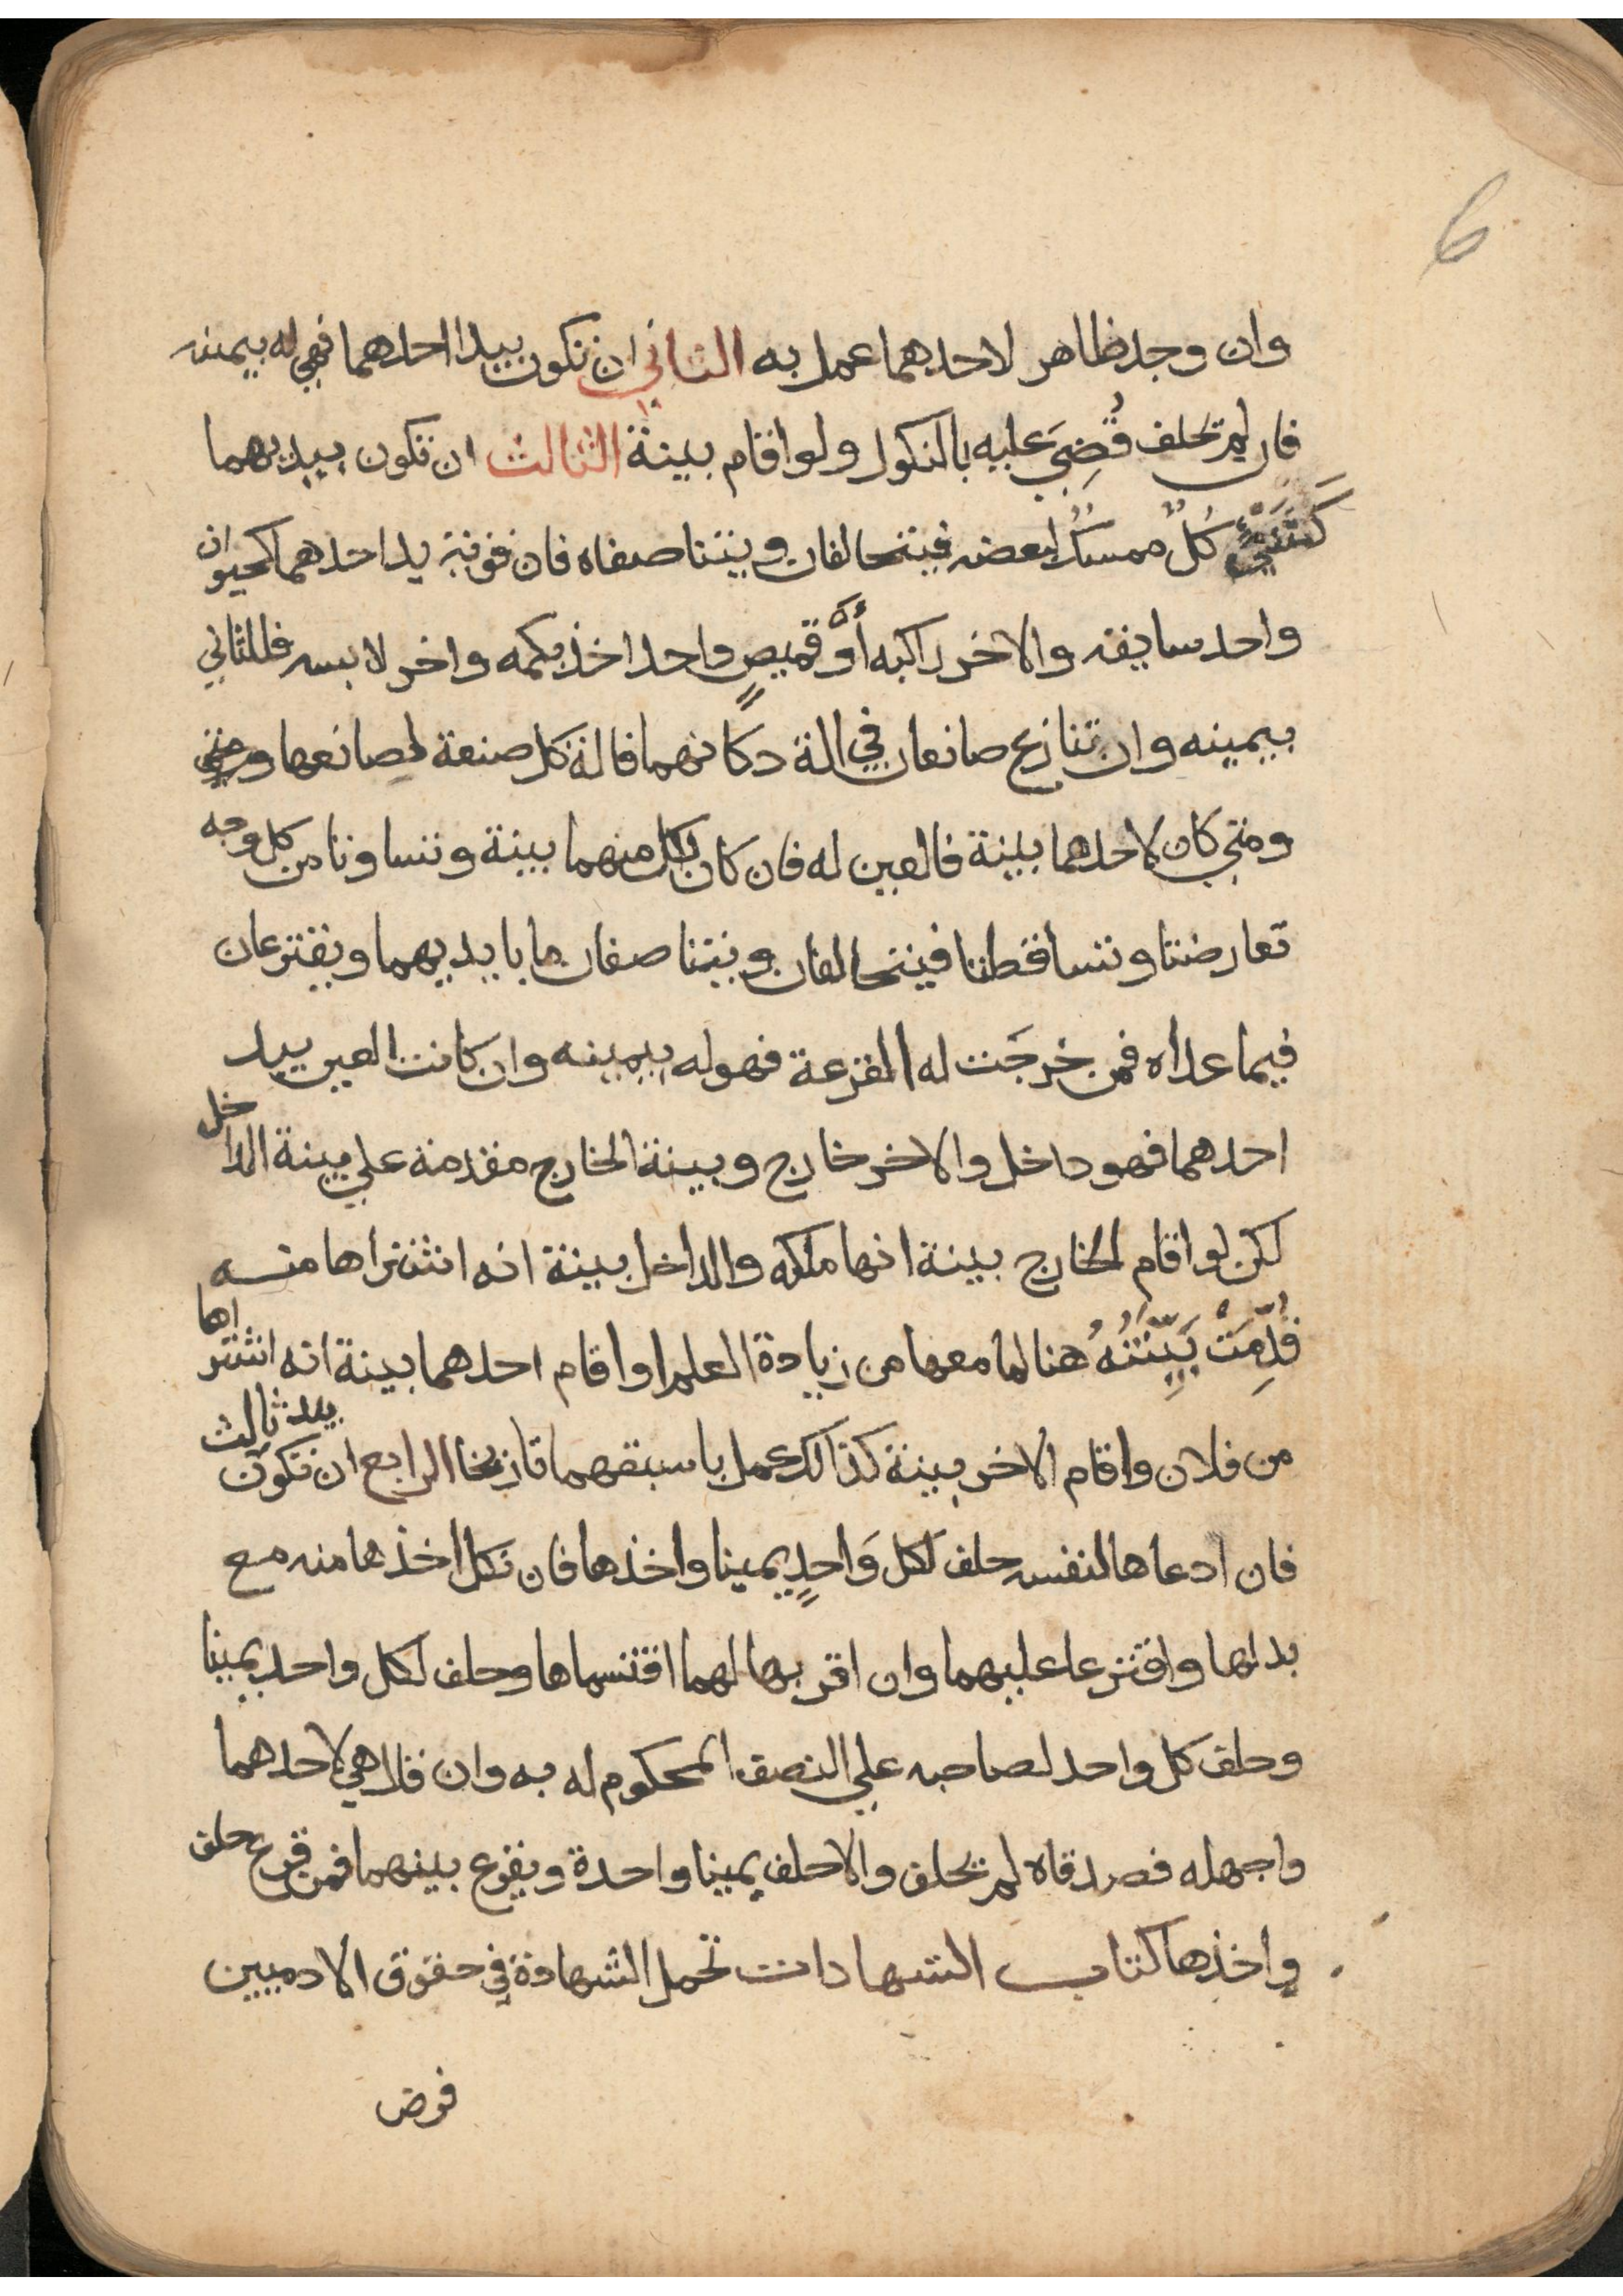 6
وان وجد ظاهر لاحدهما عمل به الثاني ان تكون بيد احدهما فهي له بيمينه
فان لم يحلف قُضِيَ عليه بالنكول ولو اقام بينة الثالث ان تكون بيديهما
كَشَيْءٍ كُلٌ ممسكٌ لبعضه فيتحالفان ويتناصفاه فان قويت يد احدهما كحيوان
واحد سايقه والاخر راكبه أَوْ قميصٍ واحد اخذ بكمه واخر لابسه فللثاني
بيمينه وان تنازع صانعان في الة دكانهما فالة كل صنعة لصانعها ومتي
ومتي كان لاحدهما بينة فالعين له فان كان لكل منهما بينة وتساوتا من كل وجه
تعارضتا وتساقطتا فيتحالفان ويتناصفان ما بايديهما ويقترعان
فيما عداه فمن خرجَت له القرعة فهو له بيمينه وان كانت العين بيد
احدهما فهو داخل والاخر خارج وبينة الخارج مقدمة علي بينة الداخل
لكن لو اقام الخارج بينة انها ملكه والداخل بينة انه اشتراها منه
قُدِّمَتْ بَيِّنَتُهُ هنا لما معها من زيادة العلم او اقام احدهما بينة انه اشتراها
من فلان واقام الاخر بينة كذالك عمل باسبقهما تاريخا الرابع ان تكون بيد ثالث
فان ادعاها لنفسه حلف لكل وَاحدٍ يمينا واخذها فان نكل اخذها منه مع
بدلها واقترعا عليهما وان اقر بها لهما اقتسماها وحلف لكل واحد يمينا
وحلف كل واحد لصاحبه علي النصف المحكوم له به وان قال هي لاحدهما
واجهله فصدقاه لم يحلف والا حلف يمينا واحدة ويقرع بينهما فمن قرع حلف
واخذها كتاب الشهادات تحمل الشهادة في حقوق الادميين
فرض